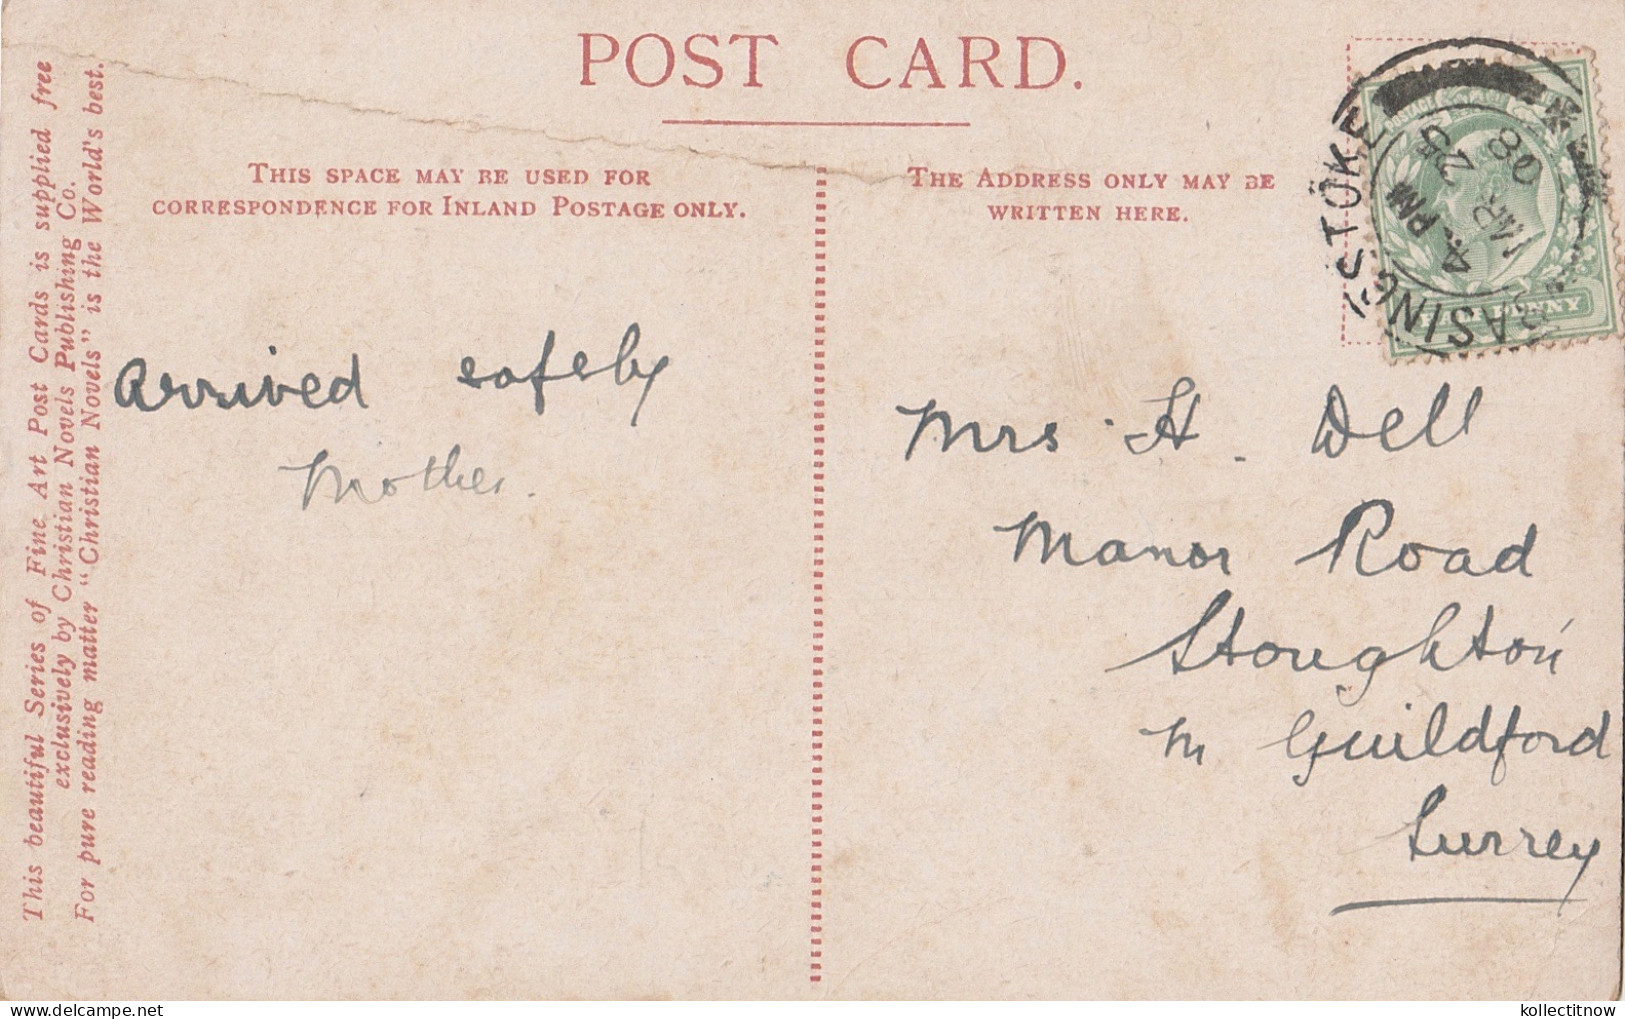 POST CARD.
THIS SPACE MAY BE USED FOR
CORRESPONDENCE FOR INLAND POSTAGE ONLY.
THE ADDRESS ONLY MAY BE
WRITTEN HERE.
This beautiful Series of Fine Art Post Cards is supplied free
exclusively by Christian Novels Publishing Co.
For pure reading matter "Christian Novels" is the World's best.
BASINGSTOKE
4. PM
MAR 25
08
Arrived safely
Mother.
Mrs. H. Dell
Manor Road
Stoughton
Guildford
Surrey
kollectitnow